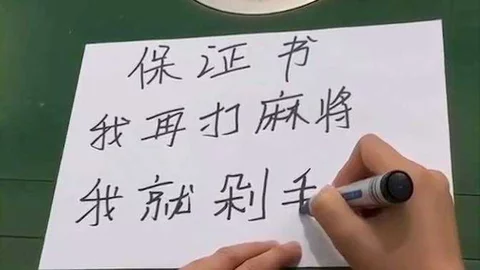 保证书
我再打麻将
我就剁